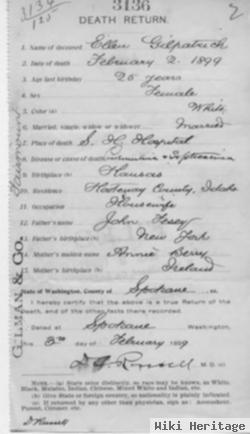 3136
3136
125
DEATH RETURN.
1. Name of deceased Ellen Gilpatrick
2. Date of death February 2, 1899
3. Age last birthday 25 years
4. Sex Female
5. Color (a) White
6. Married, single, widow or widower Married
7. Place of death S. H. Hospital
8. Disease or cause of death Septicaemia
9. Birthplace (b) Kansas
10. Residence County, Idaho
11. Occupation Housewife
12. Father's name John
13. Father's birthplace (b) New York
14. Mother's maiden name Annie Berry
15. Mother's birthplace (b) Ireland
State of Washington, County of Spokane ss.
I hereby certify that the above is a true Return of the
Death, and of the other facts there recorded.
Dated at Spokane Washington,
this 3rd day of February 1899
Russell M. D. (c)
NOTE.—(a) State color distinctly, so race may be known, as White,
Black, Mulatto, Indian, Chinese, Mixed White and Indian, etc.
(b) Give State or foreign country, so nationality is plainly indicated.
(c) If returned by any other than physician, sign as: Assessment,
Parent, Coroner, etc.
GILMAN & CO.
Wiki Heritage